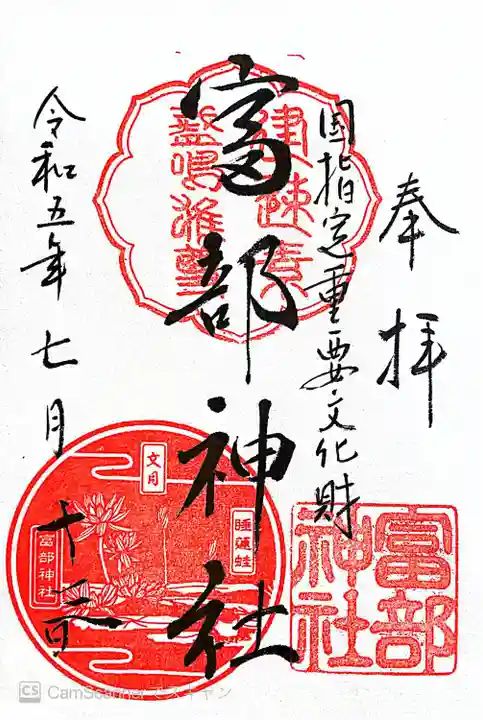 奉拝
国指定重要文化財
富部神社
令和五年七月十六日
建速素
盞嗚雅
文月
睡蓮蛙
富部神社
富部
神社
CS CamScanner でスキャン